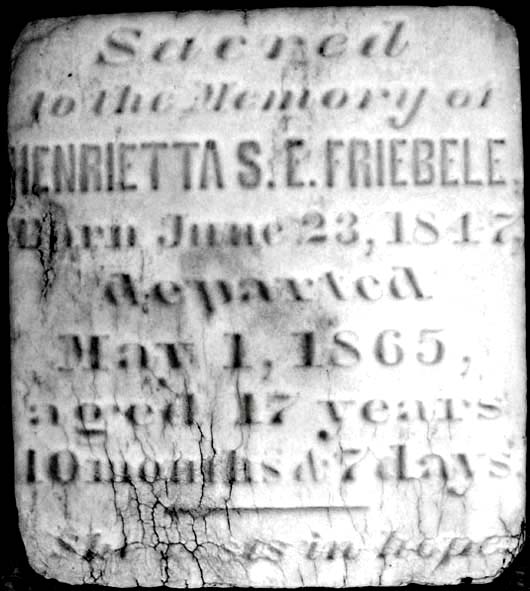 Sacred
to the Memory of
HENRIETTA S. E. FRIEBELE,
Born June 23, 1847,
departed
May 1, 1865,
aged 17 years
10 months & 7 days.
She rests in hope